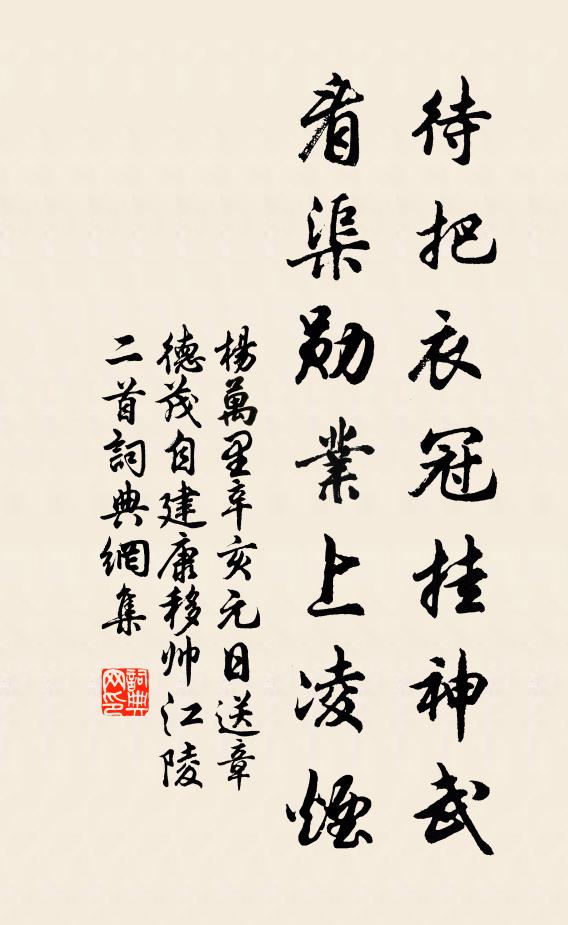 待把衣冠挂神武
看渠勋業上凌煙
楊萬里辛亥元日送章
德茂自建康移帅江陵
二首詞典網集
詞典网印